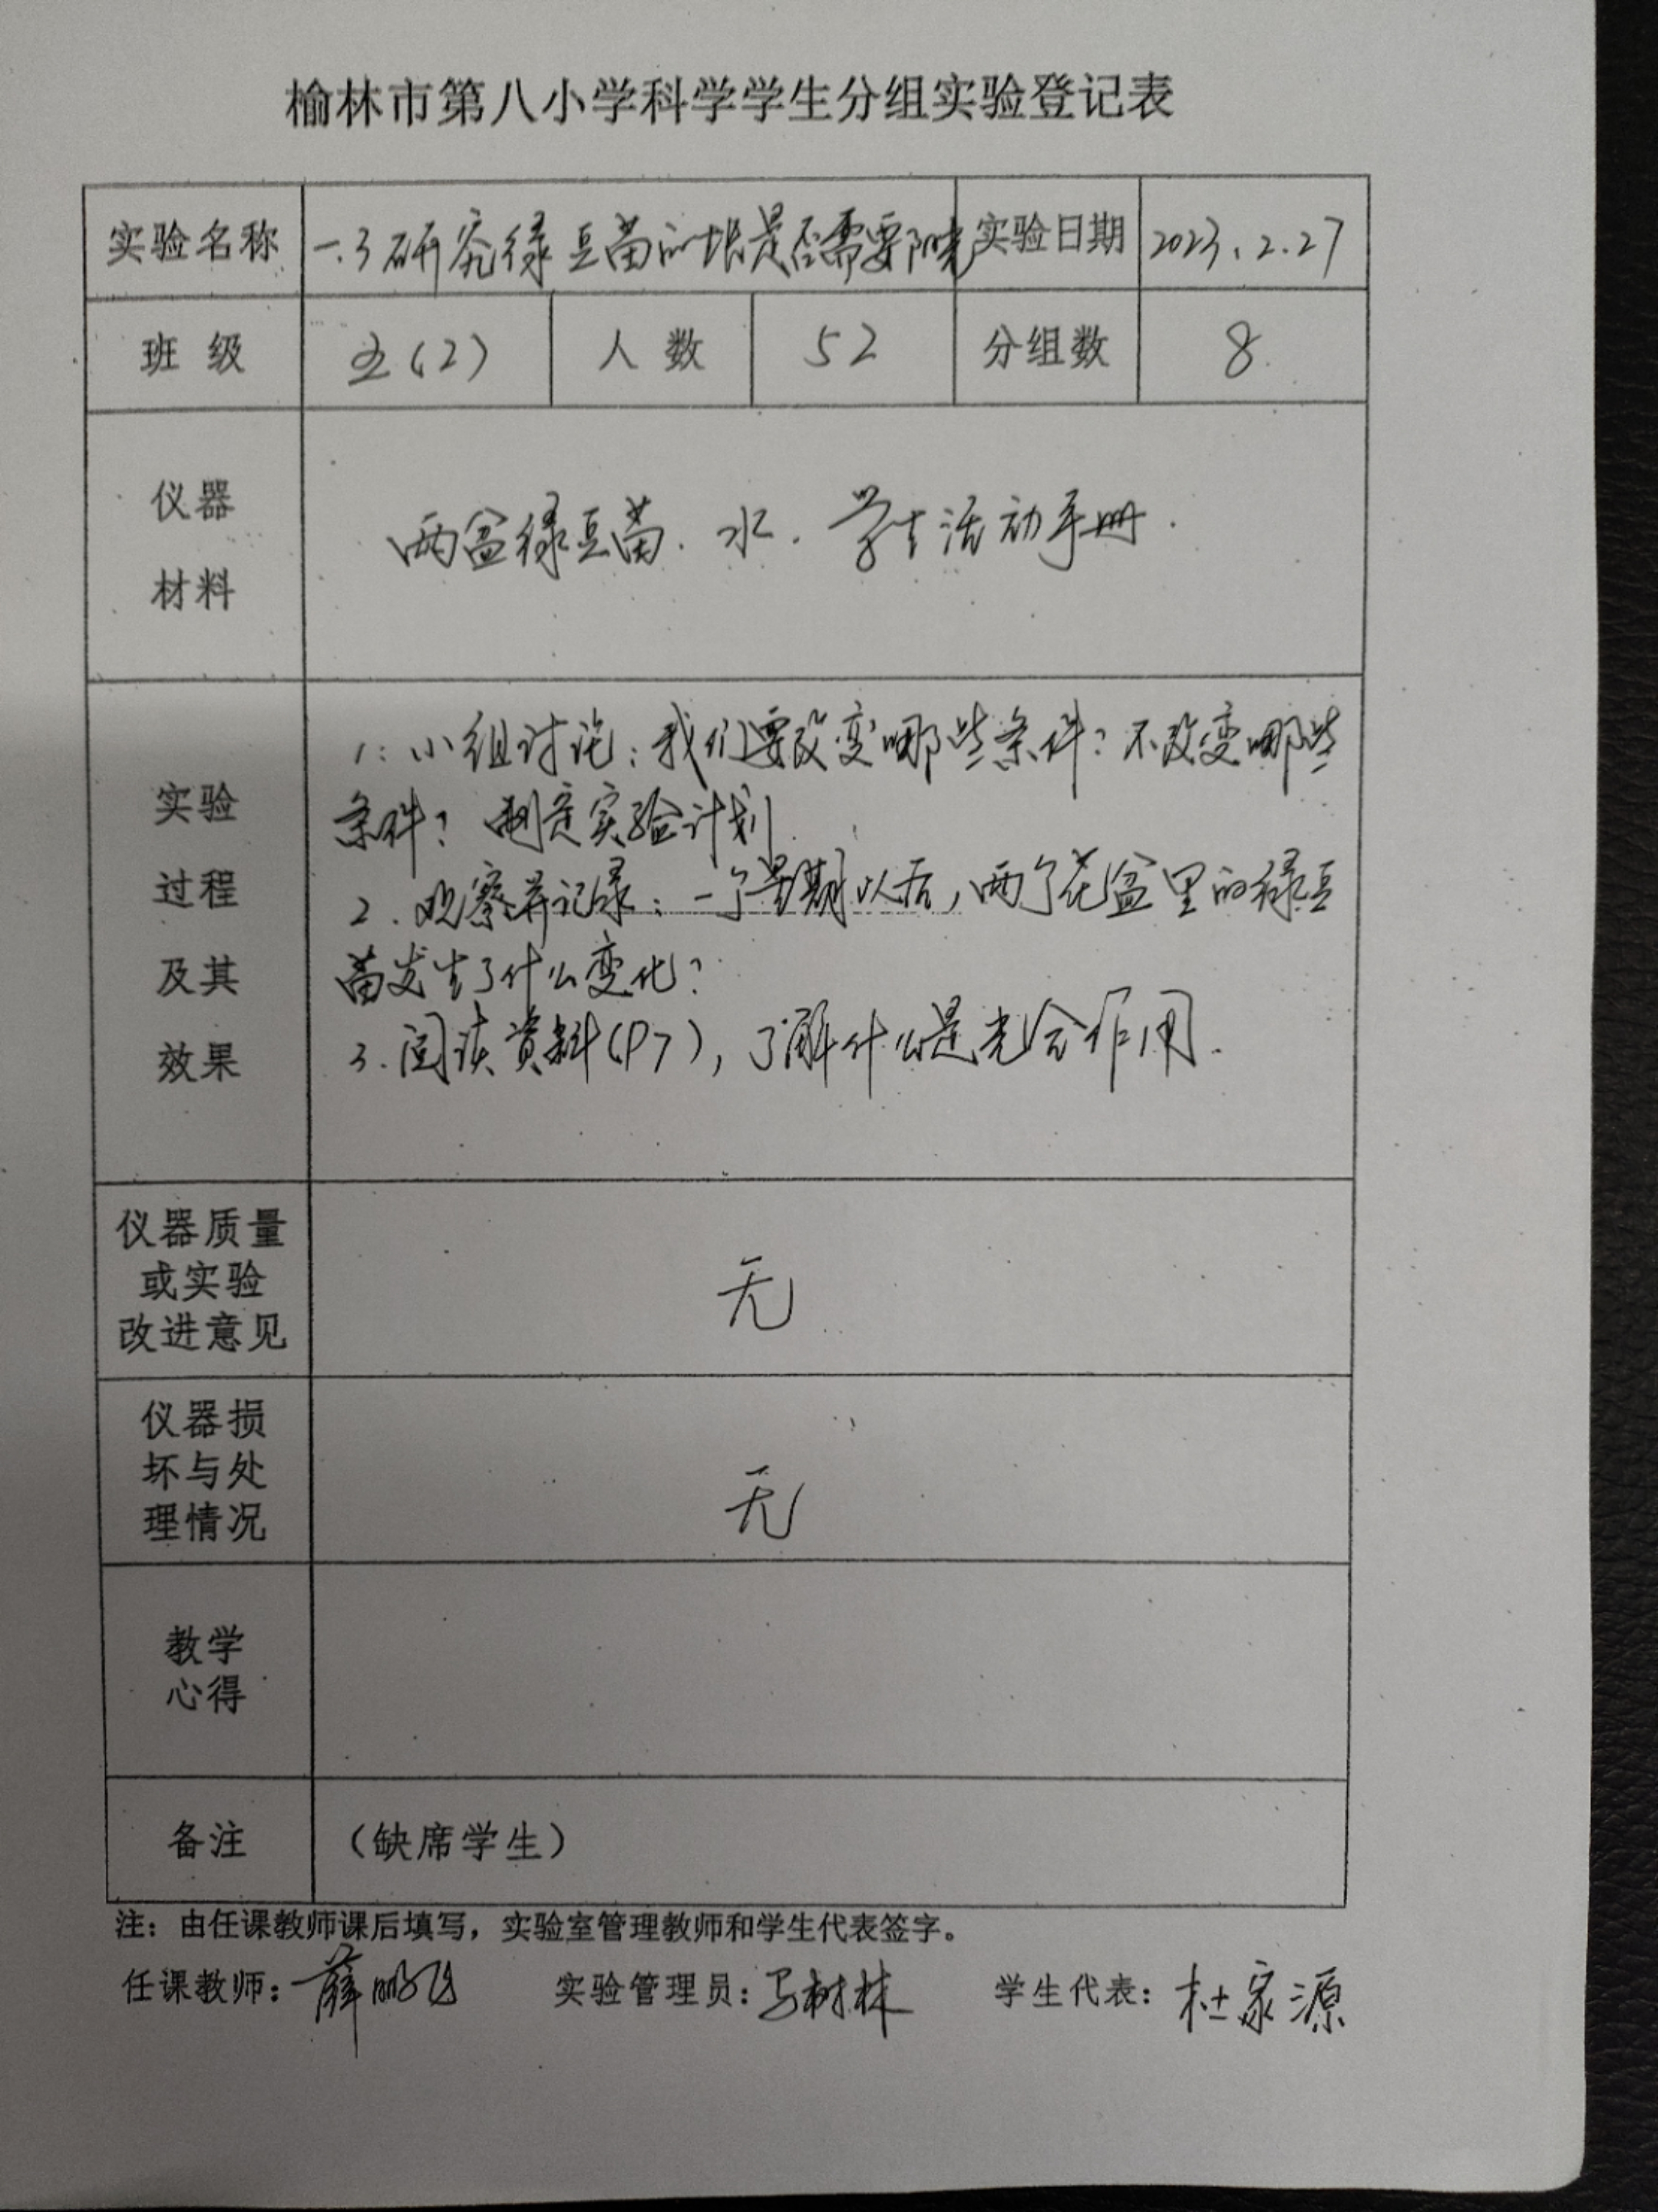 榆林市第八小学科学学生分组实验登记表
实验名称 一.3研究绿豆苗的生长是否需要阳光 实验日期 2023.2.27
班级 五(2) 人数 52 分组数 8
仪器
材料
两盆绿豆苗、水、学生活动手册.
实验
过程
及其
效果
1:小组讨论:我们要改变哪些条件?不改变哪些
条件?制定实验计划.
2.观察并记录:一个星期以后,两个花盆里的绿豆
苗发生了什么变化?
3.阅读资料(P7),了解什么是光合作用.
仪器质量
或实验
改进意见
无
仪器损
坏与处
理情况
无
教学
心得
备注 (缺席学生)
注:由任课教师课后填写,实验室管理教师和学生代表签字。
任课教师:薛鹏飞 实验管理员:马树林 学生代表:杜家源